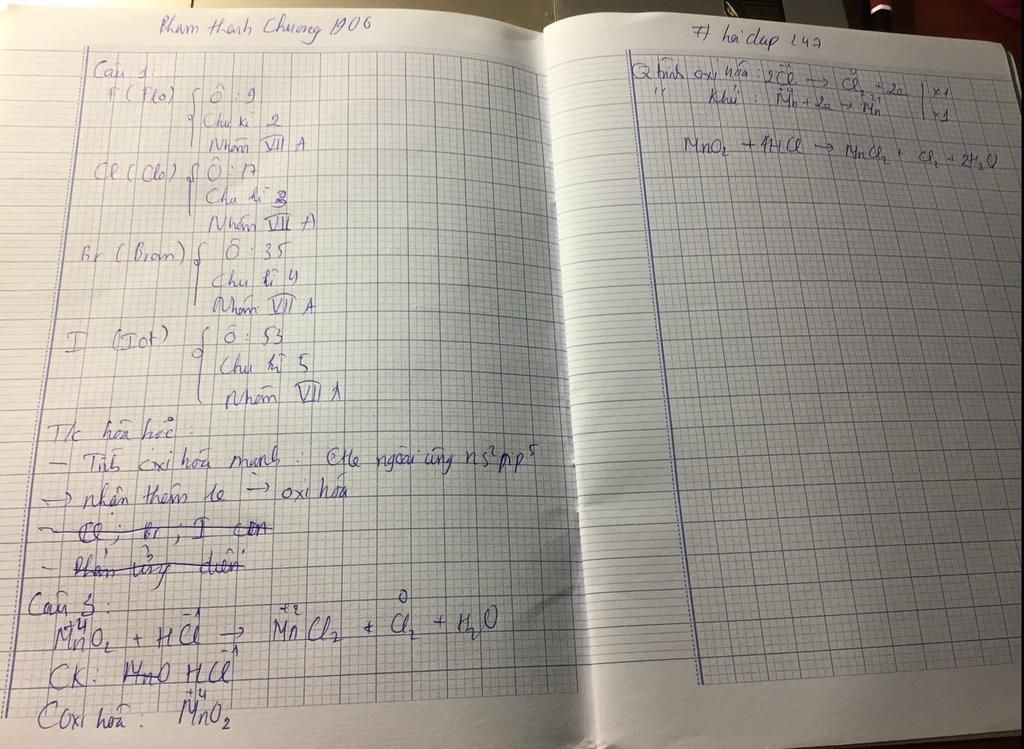 Phạm thanh Chương 1906
Câu 1:
F (Flo) { Ô : 9
Chu kì 2
Nhóm VII A
Cl (Clo) { Ô : 17
Chu kì 3
Nhóm VII A
Br (Brom) { Ô : 35
Chu kì 4
Nhóm VII A
I (Iot) { Ô : 53
Chu kì 5
Nhóm VII A
T/c hoá học :
- Tính oxi hoá mạnh : CHe ngoài cùng ns²np⁵
→ nhận thêm 1e → oxi hóa
- Cl ; Br ; I còn
- Phản ứng điển
Câu 3 :
+4 -1 +2 0
MnO₂ + HCl → MnCl₂ + Cl₂ + H₂O
CK : MnO HCl⁻¹
+4
C oxi hoá : MnO₂
7) hỏi đáp 247
Q trình oxi hóa : 2Cl → Cl₂ + 2e | x1
" Khử : Mn + 2e → Mn | x1
MnO₂ + 4HCl → MnCl₂ + Cl₂ + 2H₂O